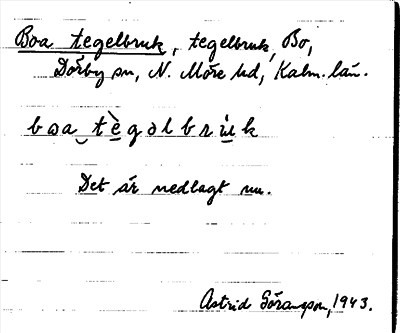 Boa tegelbruk, tegelbruk, Bo,
Dörby sn, N. Möre hd, Kalm. län.
boa tègəlbrùk
Det är nedlagt nu.
Astrid Göransson, 1943.